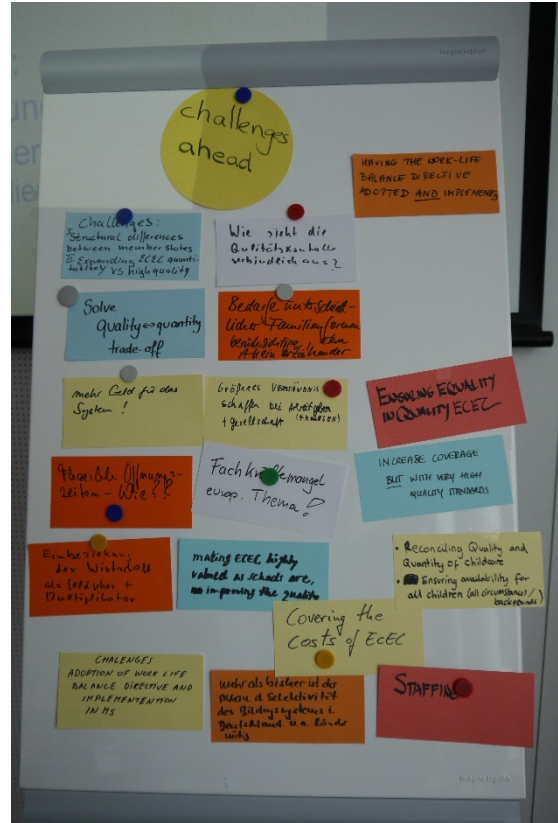 challenges
ahead
HAVING THE WORK-LIFE
BALANCE DIRECTIVE
ADOPTED AND IMPLEMENTED
Challenges:
I Structural differences
between member states
II Expanding ECEC quanti-
tatively vs high quality
Wie sieht die
Qulitätskontrolle
verbindlich aus?
Solve
quality ↔ quantity
trade-off
Bedarfe unterschied-
licher Familienformen
berücksichtigen
Alleinerziehender
mehr Geld für das
System!
Größeres Verständnis
schaffen bei Arbeitgeber
+ Gesellschaft
ENSURING EQUALITY
IN QUALITY ECEC
Flexible Öffnungs-
zeiten - Wie??
Fachkräftemangel
europ. Thema?
INCREASE COVERAGE
BUT WITH VERY HIGH
QUALITY STANDARDS
Einbeziehung
der Wirtschaft
als Geldgeber +
Multiplikator
making ECEC highly
valued as schools are,
improving the quality
• Reconciling Quality and
Quantity of childcare
• Ensuring availability for
all children (all circumstances/
backgrounds)
Covering the
costs of ECEC
CHALENGES
ADOPTION OF WORK LIFE
BALANCE DIRECTIVE AND
IMPLEMENTENTION
IN MS
mehr als bisher ist der
d Selektivität
des Bildungssystems i.
Deutschland u.a. Länder
nötig
STAFFING